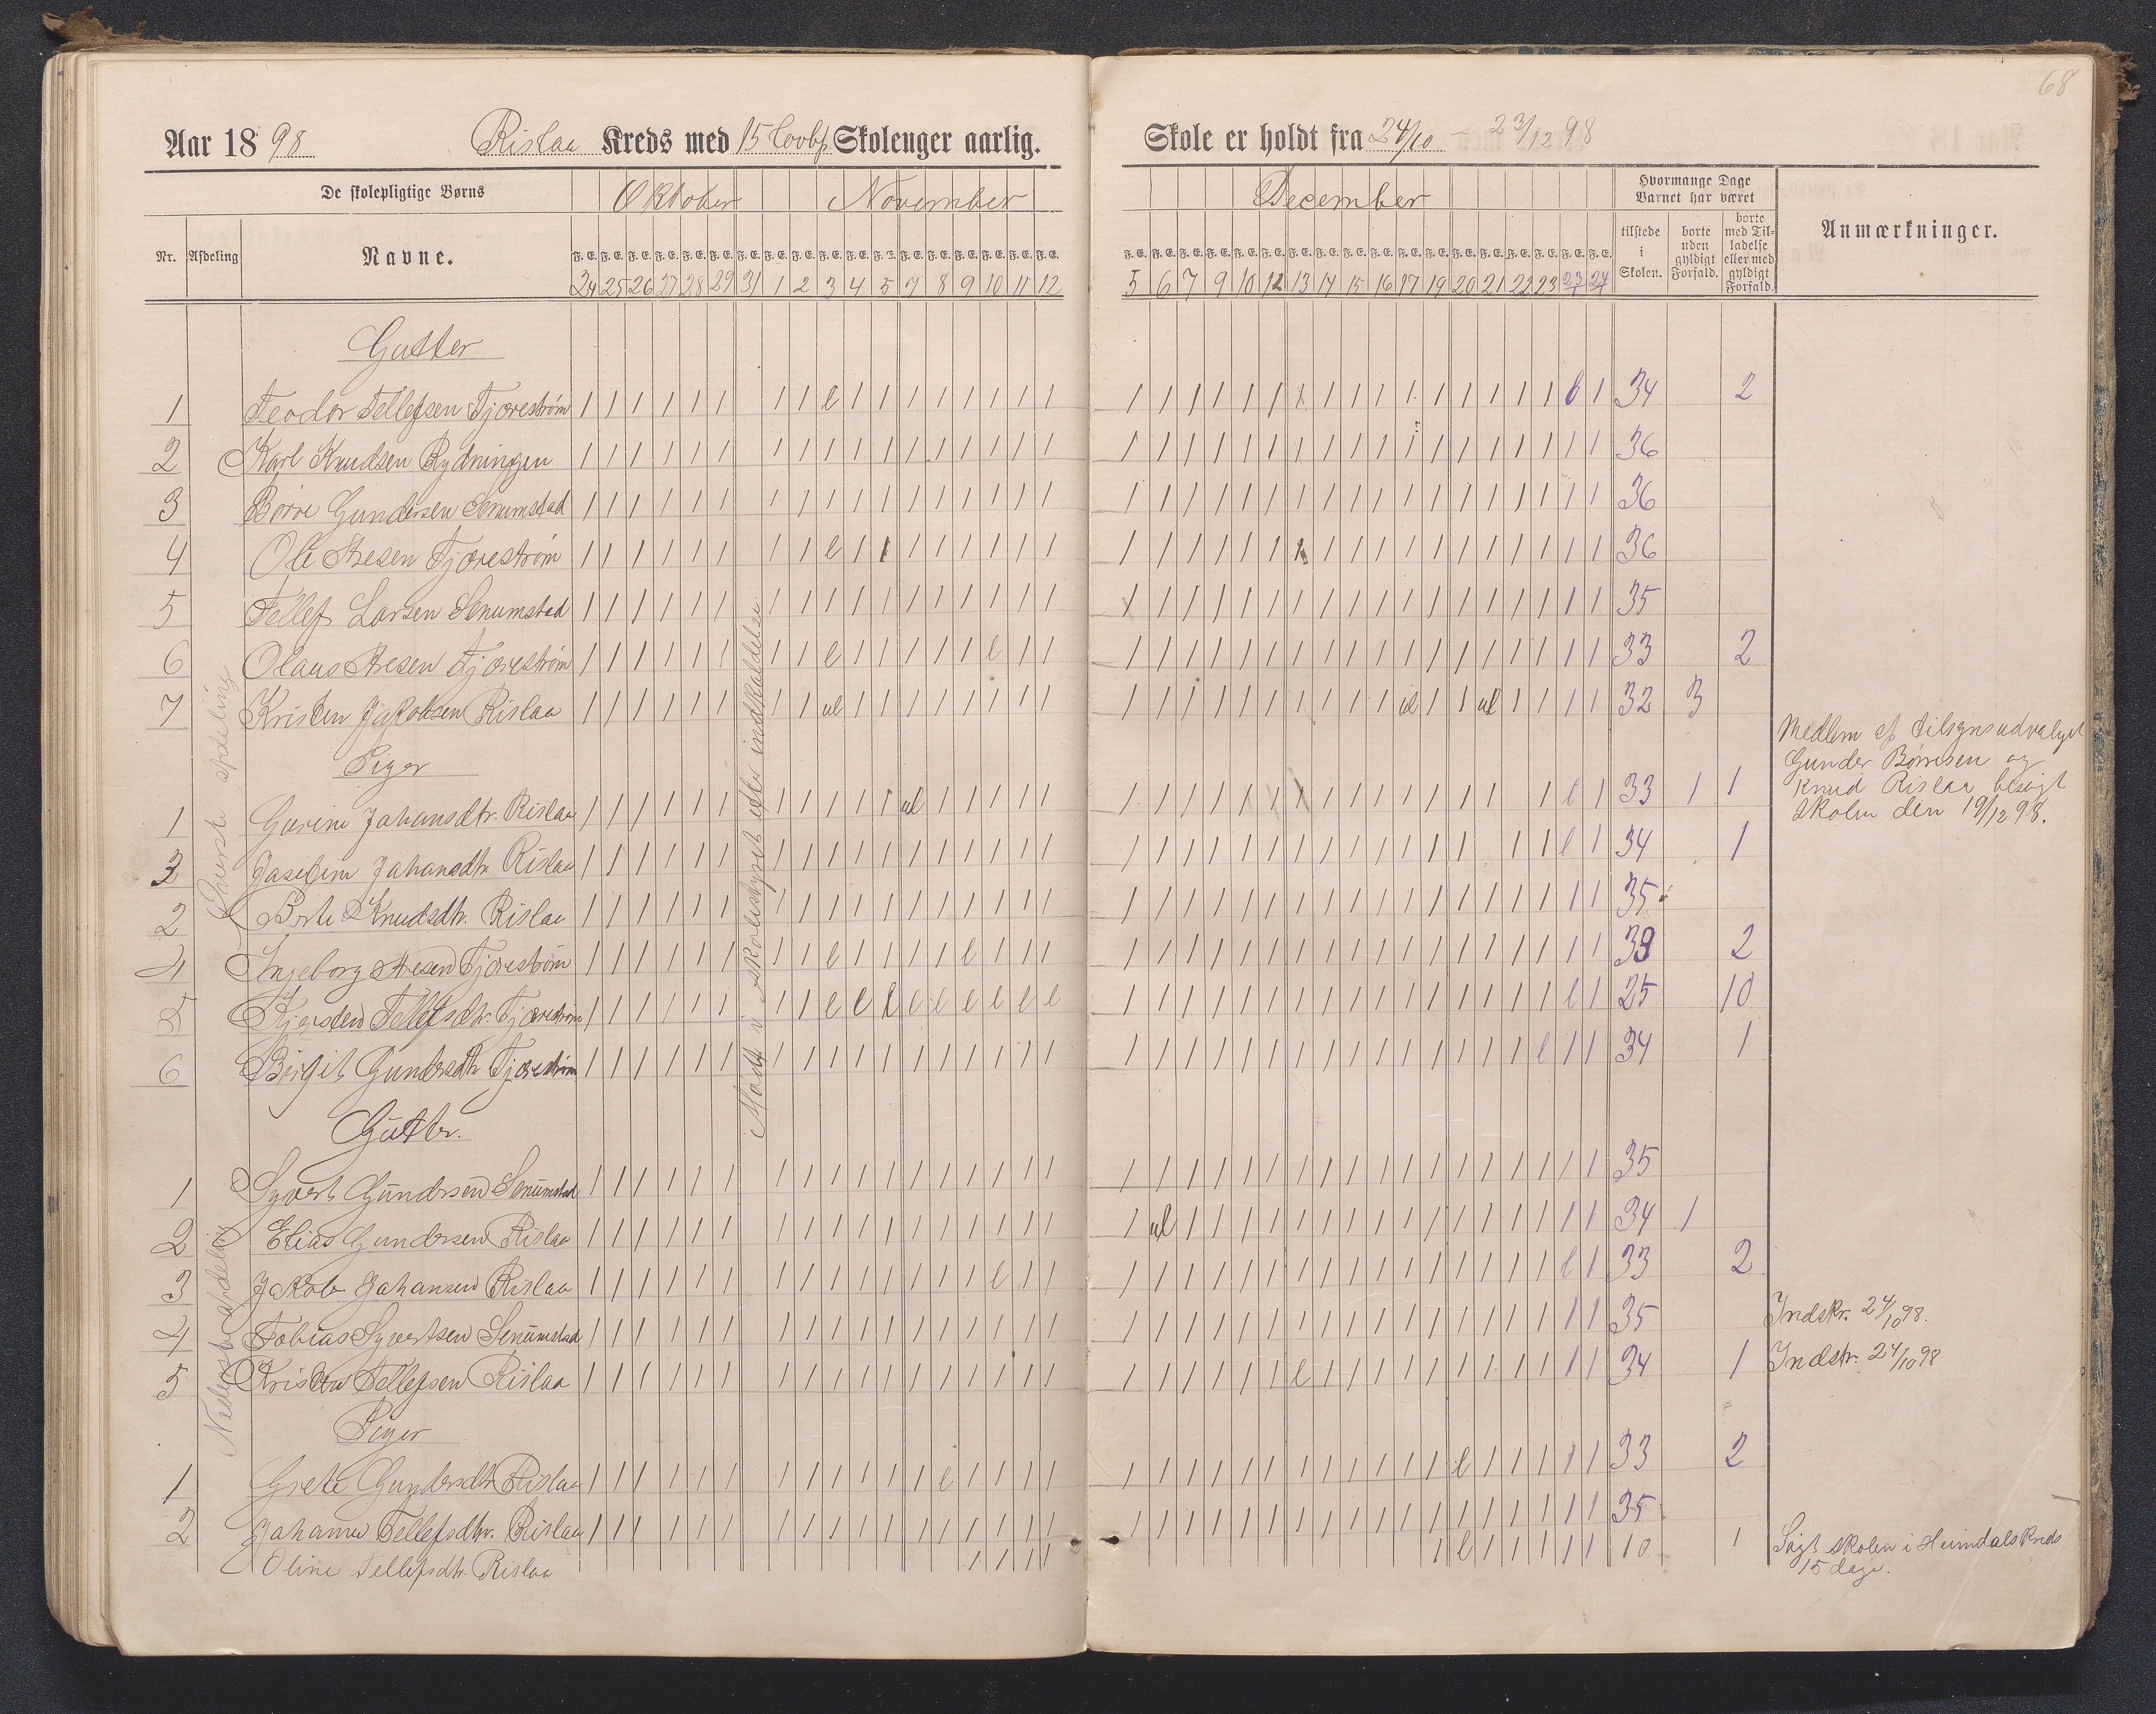 68
Aar 1898 Rislaa Kreds med 15 Skoleuger aarlig. Skole er holdt fra 24/10 - 23/12 98
De skolepligtige Børns Oktober November December Hvormange Dage Barnet har været Anmærkninger.
Nr. Afdeling Navne. tilstede i Skolen. borte uden gyldigt Forfald. borte med Tilladelse eller med gyldigt Forfald.
F. E. F. E. F. E. F. E. F. E. F. E. F. E. F. E. F. E. F. E. F. E. F. E. F. E. F. E. F. E. F. E. F. E. F. E.
24 25 26 27 28 29 31 1 2 3 4 5 7 8 9 10 11 12 5 6 7 9 10 12 13 14 15 16 17 19 20 21 22 23 23 24
Øverste afdeling
Møde i skolestyret efter indkaldelse
Gutter
1 Teodor Tellefsen Tjorestrøm 34 2
2 Karl Knudsen Rydningen 36
3 Børre Gundersen Senumstad 36
4 Ole Aresen Tjorestrøm 36
5 Tellef Larsen Senumstad 35
6 Olaus Aresen Tjorestrøm 33 2
7 Kristen Jakobsen Rislaa 32 3
Piger
Medlem af tilsynsudvalget
Gunder Børresen og
Knud Rislaa besøgt
skolen den 19/12 98.
1 Gurine Johansdtr. Rislaa 33 1 1
3 Josefine Johansdtr. Rislaa 34 1
2 Berte Knudsdtr. Rislaa 35
4 Ingeborg Aresen Tjorestrøm 33 2
5 Kjersten Tellefsdtr. Tjorestrøm 25 10
6 Birgit Gundersdtr. Tjorestrøm 34 1
Nederste afdeling
Gutter.
1 Syvert Gundersen Senumstad 35
2 Elias Gundersen Rislaa 34 1
3 Jakob Johansen Rislaa 33 2
4 Tobias Syvertsen Senumstad 35 Indskr. 24/10 98.
5 Kristen Tellefsen Rislaa 34 1 Indskr. 24/10 98
Piger
1 Grete Gundersdtr. Rislaa 33 2
2 Johanne Tellefsdtr. Rislaa 35
Oline Tellefsdtr. Rislaa 10 1 Søgt skolen i Heimdals Kreds
15 dage.